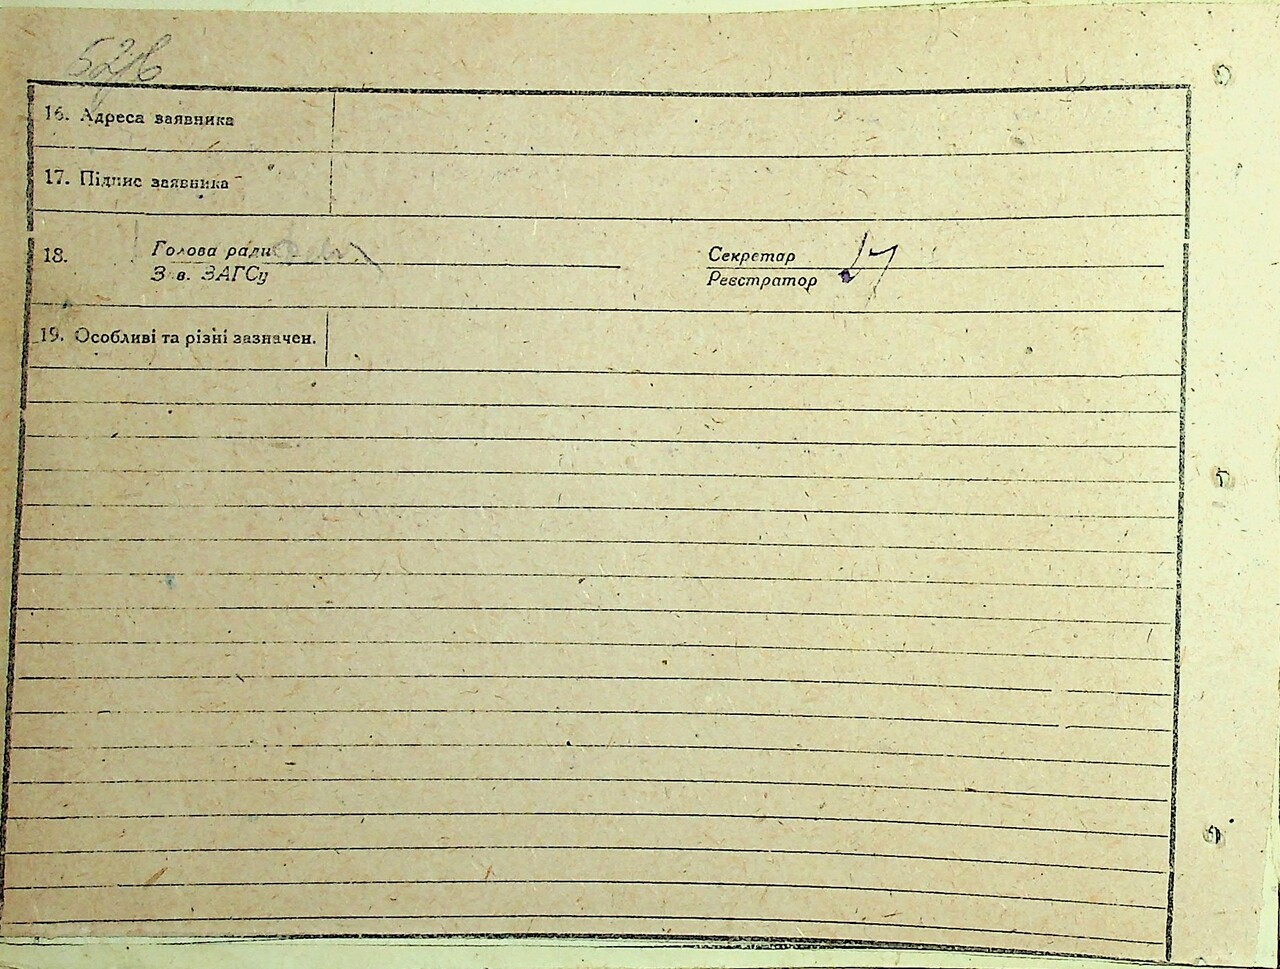 16. Адреса заявника
17. Підпис заявника
18. Голова ради Секретар
З в. ЗАГСу Реєстратор
19. Особливі та різні зазначен.